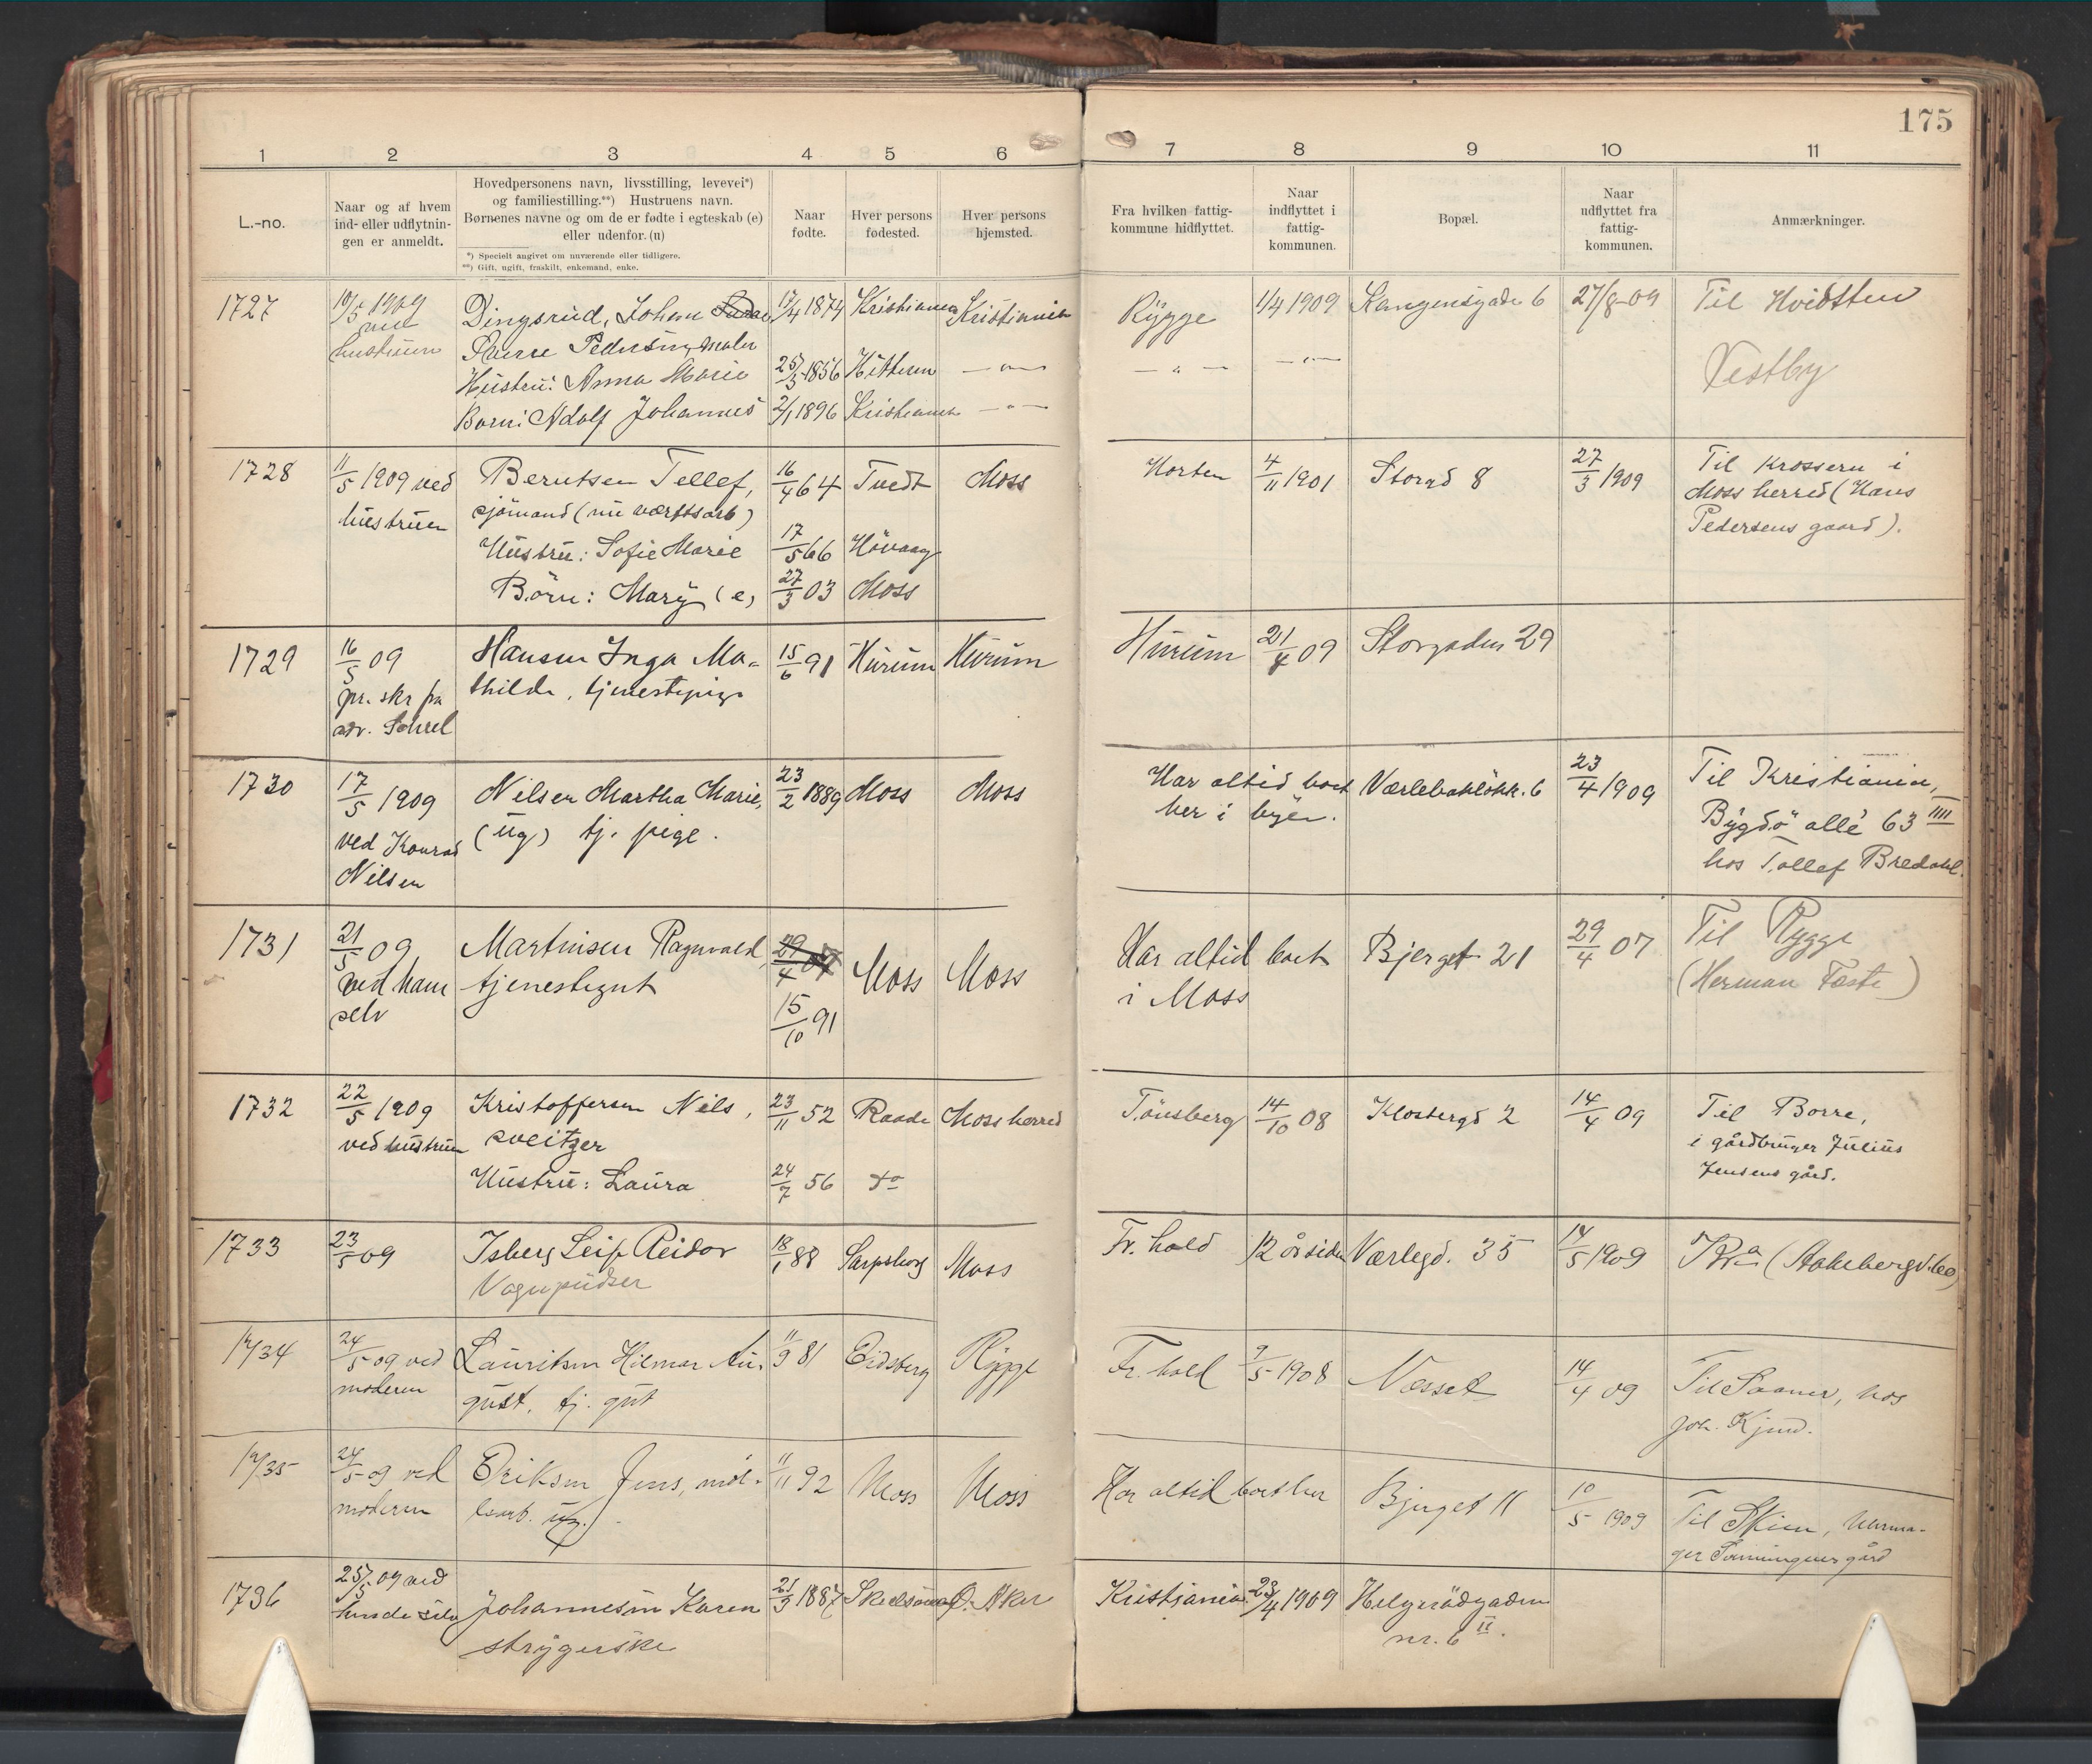 175
1 2 3 4 5 6 7 8 9 10 11
L.-no.
Naar og af hvem
ind- eller udflytnin-
gen er anmeldt.
Hovedpersonens navn, livsstilling, levevei*)
og familiestilling.**) Hustruens navn.
Børnenes navne og om de er fødte i egteskab (e)
eller udenfor. (u)
*) Specielt angivet om nuværende eller tidligere.
**) Gift, ugift, fraskilt, enkemand, enke.
Naar
fødte.
Hver persons
fødested.
Hver persons
hjemsted.
Fra hvilken fattig-
kommune hidflyttet.
Naar
indflyttet i
fattig-
kommunen.
Bopæl.
Naar
udflyttet fra
fattig-
kommunen.
Anmærkninger.
1727
10/5 1909
ved
hustruen
Dingsrud, Johan
Pedersen, maler
Hustru: Anna Marie
Børn: Adolf Johannes
17/4 1874 Kristiania Kristiania
25/3 1856 Hitteren — " —
2/1 1896 Kristiania — " —
Rygge 1/4 1909 Kangensgade 6 27/8-09 Til Hvidsten
— " — — " —
Vestby
1728
11/5 1909 ved
hustruen
Berntsen Tellef,
sjömand (nu værftsarb)
Hustru: Sofie Marie
Börn: Mary (e)
16/4 64 Tvedt Moss
17/5 66 Hövaag
27/3 03 Moss
Horten 4/11 1901 Storgd 8 27/3 1909
Til Krossern i
Moss herred (Hans
Pedersens gaard).
1729
16/5 09
pr. skr fra
Hansen Inga Ma-
thilde, tjenestepige
15/6 91 Hurum Hurum
Hurum 21/4 09 Storgaden 29
1730
17/5 1909
ved Konrad
Nilsen
Nilsen Martha Marie,
(ug) tj. pige.
23/2 1889 Moss Moss
Har altid boet
her i byen.
Værlebakløkk. 6 23/4 1909
Til Kristiania,
Bygdö allé 63 IIII
hos Tollef Bredahl.
1731
21/5 09
ved ham
selv
Martinsen Ragnvald,
tjenestegut
29/4 07
15/10 91
Moss Moss
Har altid boet
i Moss
Bjerget 21 29/4 07
Til Rygge
(Herman Faste)
1732
22/5 1909
ved hustruen
Kristoffersen Nils,
sveitzer
Hustru: Laura
23/11 52 Raade Moss herred
24/7 56 do
Tönsberg 14/10 08 Klostergd 2 14/4 09
Til Borre,
i gårdbruger Julius
Jensens gård.
1733
23/5 09
Isberg Leif Reidar
Vognpudser
18/1 88 Sarpsborg Moss
Fr. hald 12 år siden Værlegd. 35 14/5 1909 Kra (Akebergv. 60)
1734
24/5 09 ved
moderen
Lauritsen Hilmar Au-
gust, tj. gut
11/9 81 Eidsberg Rygge
Fr. hald 9/5 1908 Næsset 14/4 09
Til Saaner, hos
Joh. Kjend.
1735
24/5 09 ved
moderen
Eriksen Jens, möl-
learb. ug.
11/11 92 Moss Moss
Har altid boet her Bjerget 11 10/5 1909
Til Skien, Uhrma-
ger gård
1736
25/5 09 ved
hende selv
Johannesen Karen
strygerske
21/3 1887 Skedsmo Ö. Aker
Kristiania 23/4 1909 Helgerödgaden
nr. 6 II.